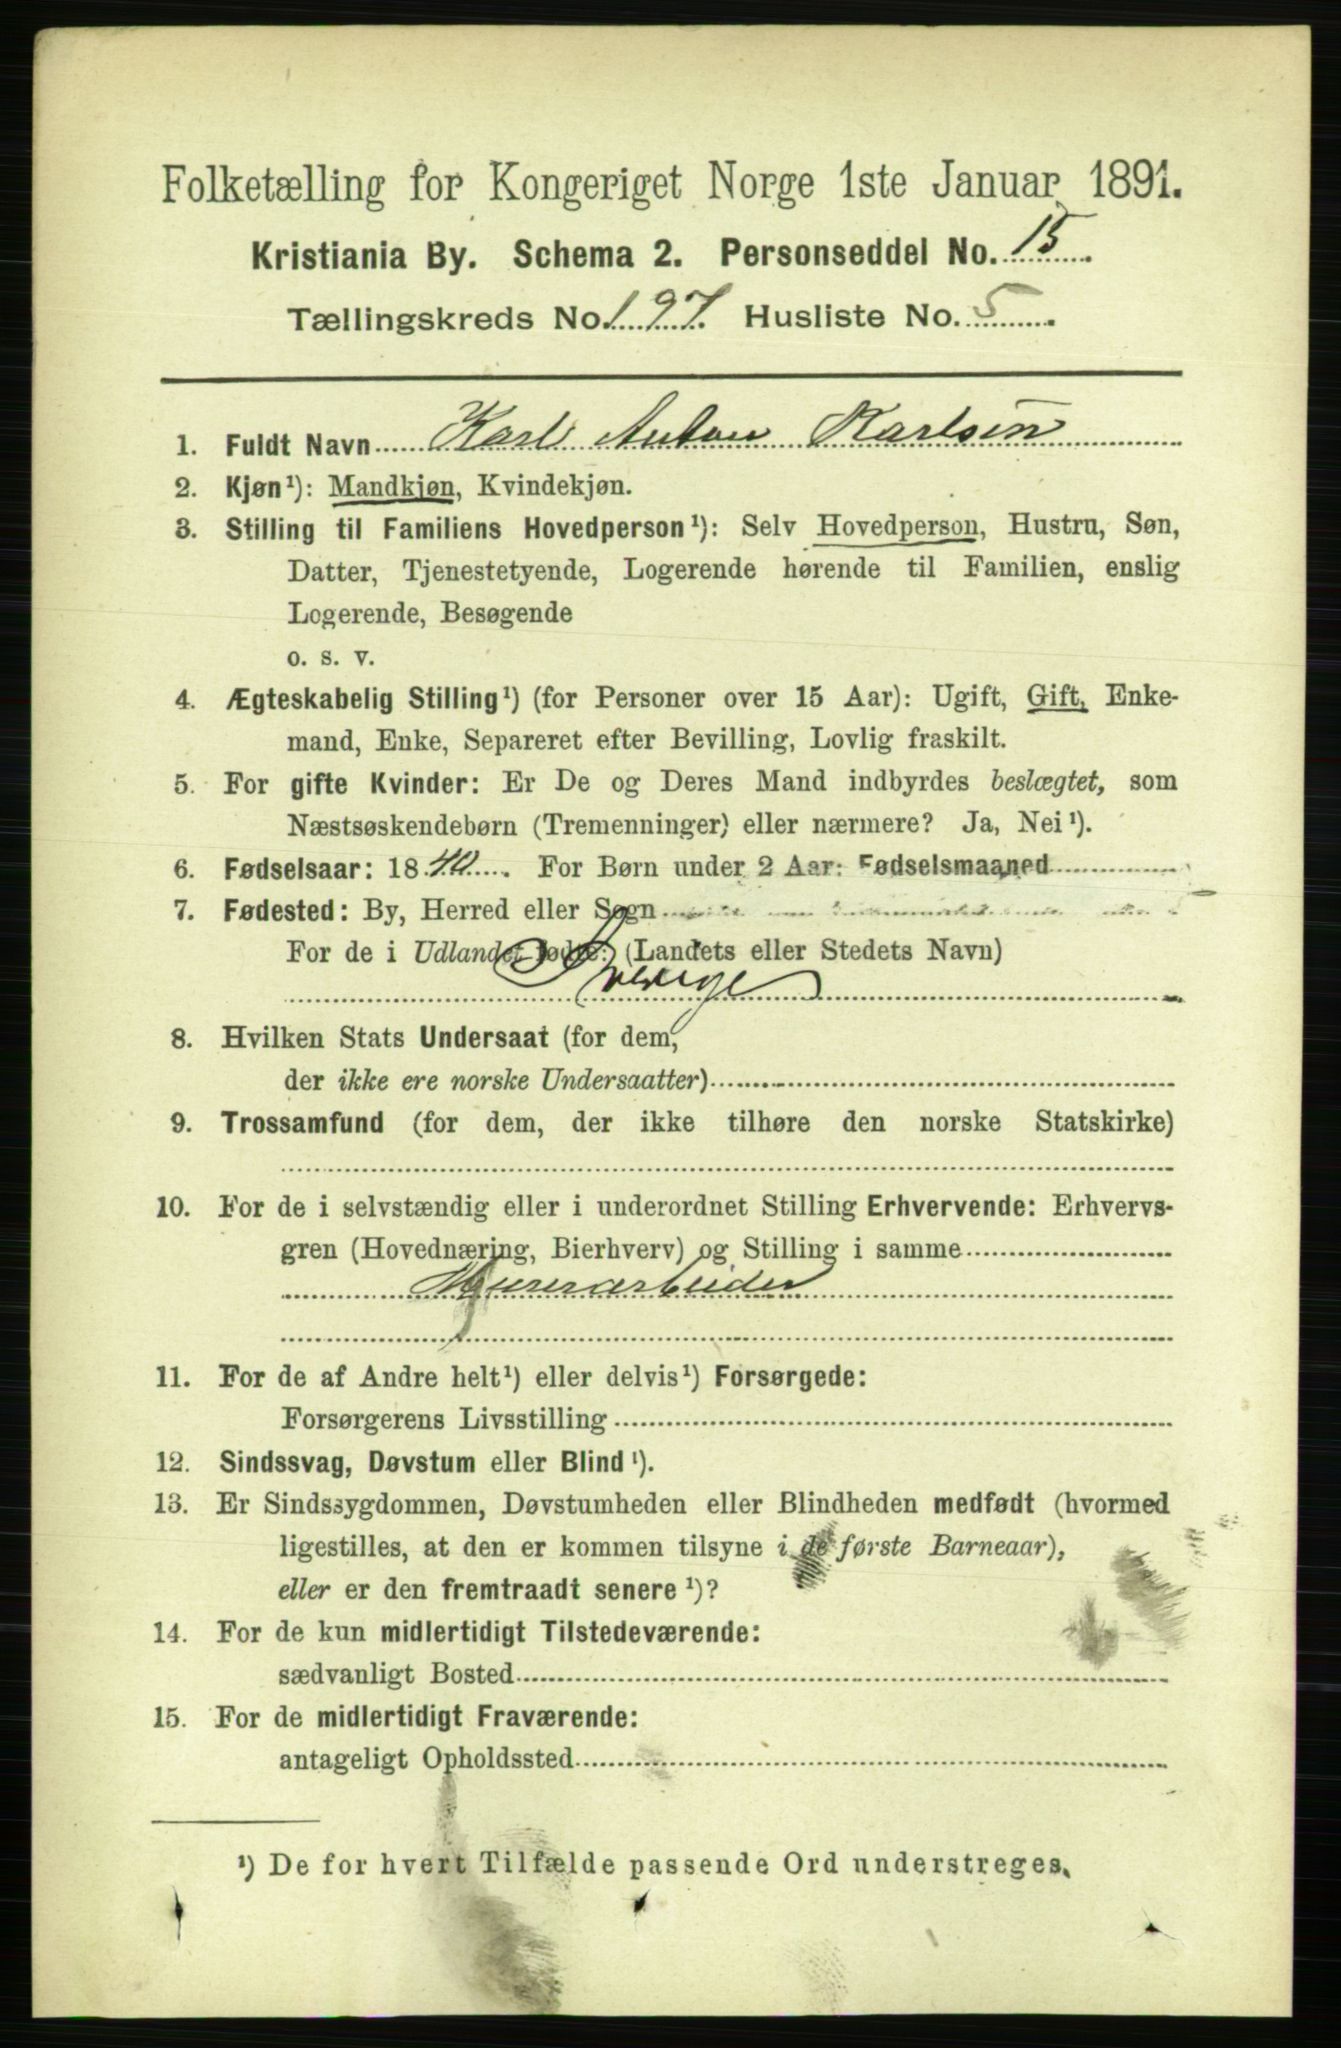 Folketælling for Kongeriget Norge 1ste Januar 1891.
Kristiania By. Schema 2. Personseddel No. 15
Tællingskreds No. 197. Husliste No. 5
1. Fuldt Navn Karl Anton Karlsen
2. Kjøn¹): Mandkjøn, Kvindekjøn.
3. Stilling til Familiens Hovedperson¹): Selv Hovedperson, Hustru, Søn,
Datter, Tjenestetyende, Logerende hørende til Familien, enslig
Logerende, Besøgende
o. s. v.
4. Ægteskabelig Stilling¹) (for Personer over 15 Aar): Ugift, Gift, Enke-
mand, Enke, Separeret efter Bevilling, Lovlig fraskilt.
5. For gifte Kvinder: Er De og Deres Mand indbyrdes beslægtet, som
Næstsøskendebørn (Tremenninger) eller nærmere? Ja, Nei¹).
6. Fødselsaar: 1840. For Børn under 2 Aar: Fødselsmaaned
7. Fødested: By, Herred eller Sogn
For de i Udlandet fødte: (Landets eller Stedets Navn)
Sverige
8. Hvilken Stats Undersaat (for dem,
der ikke ere norske Undersaatter)
9. Trossamfund (for dem, der ikke tilhøre den norske Statskirke)
10. For de i selvstændig eller i underordnet Stilling Erhvervende: Erhvervs-
gren (Hovednæring, Bierhverv) og Stilling i samme
Murerarbeider
11. For de af Andre helt¹) eller delvis¹) Forsørgede:
Forsørgerens Livsstilling
12. Sindssvag, Døvstum eller Blind¹).
13. Er Sindssygdommen, Døvstumheden eller Blindheden medfødt (hvormed
ligestilles, at den er kommen tilsyne i de første Barneaar),
eller er den fremtraadt senere¹)?
14. For de kun midlertidigt Tilstedeværende:
sædvanligt Bosted
15. For de midlertidigt Fraværende:
antageligt Opholdssted
¹) De for hvert Tilfælde passende Ord understreges.